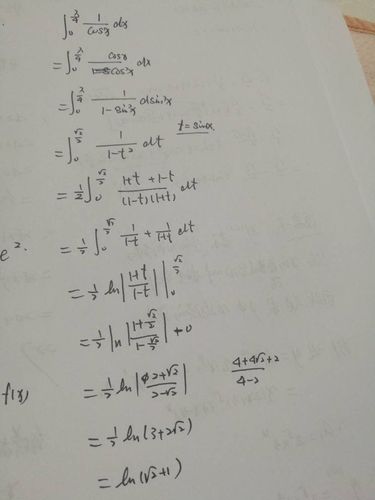 ∫₀^{π/4} 1/cosx dx
= ∫₀^{π/4} cosx/cos²x dx
= ∫₀^{π/4} 1/(1-sin²x) dsinx
= ∫₀^{√2/2} 1/(1-t²) dt t=sinx
= 1/2 ∫₀^{√2/2} (1+t+1-t)/((1-t)(1+t)) dt
e². = 1/2 ∫₀^{√2/2} 1/(1-t) + 1/(1+t) dt
= 1/2 ln|(1+t)/(1-t)| |₀^{√2/2}
= 1/2 ln|(1+√2/2)/(1-√2/2)| + 0
f(x) = 1/2 ln|(2+√2)/(2-√2)| (4+4√2+2)/(4-2)
= 1/2 ln(3+2√2)
= ln(√2+1)